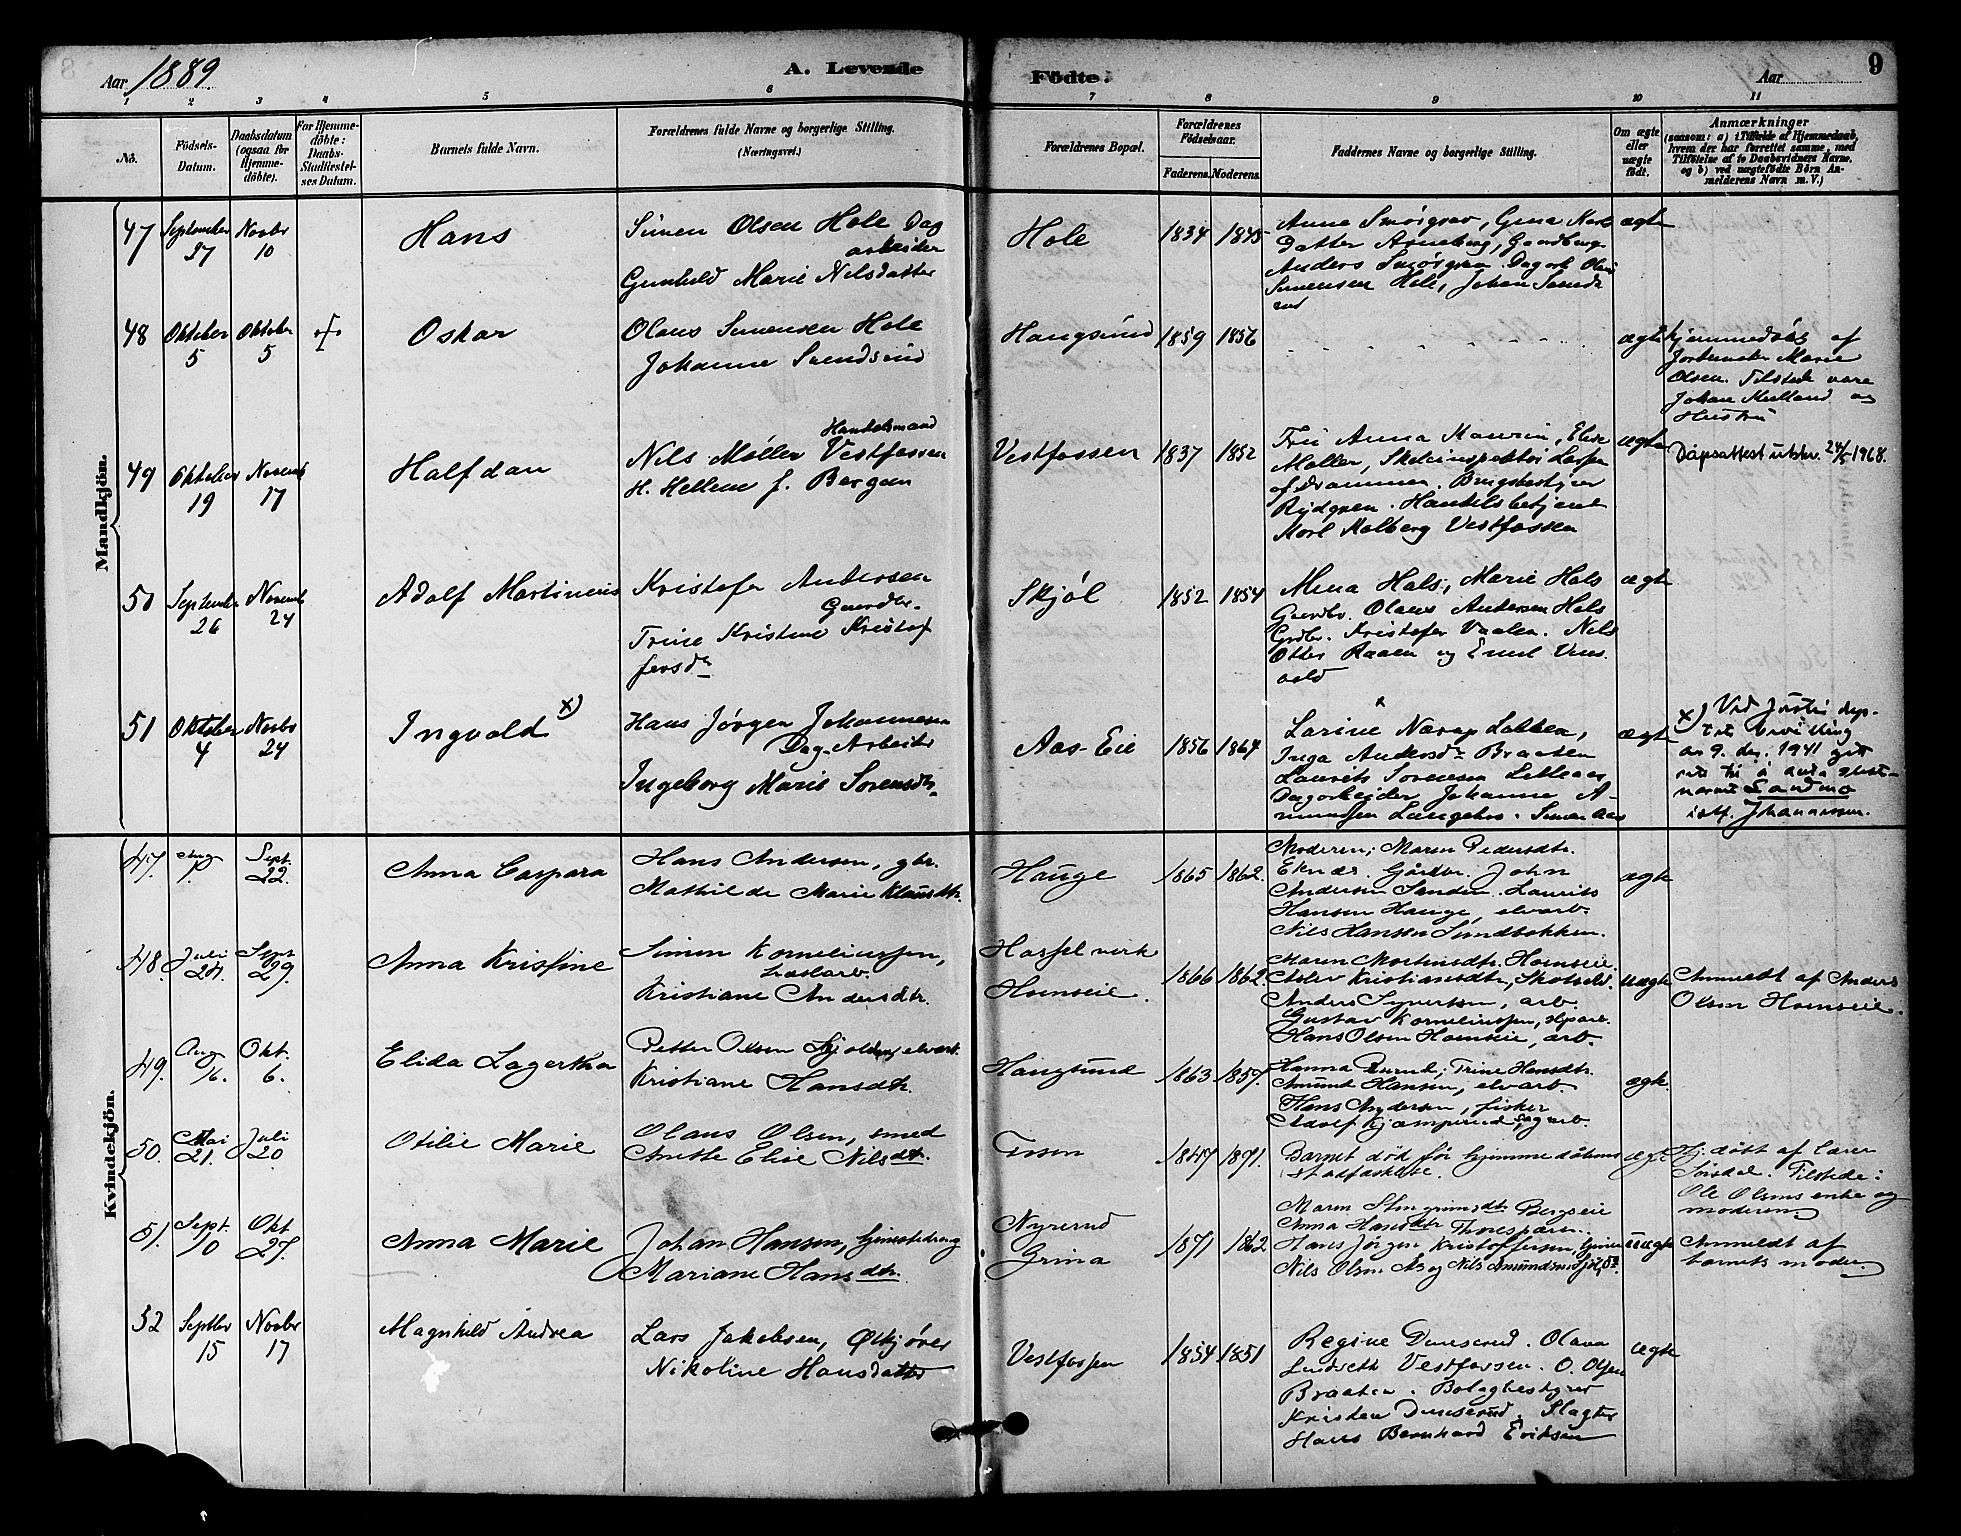 Aar 1889.
A. Levende
Födte.
Aar
9
1 2 3 4 5 6 7 8 9 10 11
No.
Födsels-
Datum.
Daabsdatum
(ogsaa for
Hjemme-
döbte).
For Hjemme-
döbte:
Daabs-
Stadfæstel-
ses Datum.
Barnets fulde Navn.
Forældrenes fulde Navne og borgerlige Stilling.
(Næringsvei.)
Forældrenes Bopæl.
Forældrenes
Födselsaar.
Faderens. Moderens.
Faddernes Navne og borgerlige Stilling.
Om ægte
eller
uægte
födt.
Anmærkninger
(saasom: a) i Tilfælde af Hjemmedaab,
hvem der har forrettet samme, med
Tilföielse af to Daabsvidners Navne,
og b) ved uægtefödte Börn An-
melderens Navn m. V.)
Mandkjön.
47
September
27
Novbr
10
Hans
Simen Olsen Hole Dag
arbeider
Gunhild Marie Nilsdatter
Hole
1834 1845
Anne Smørgrav, Gina Karls
Datter Arneberg, Gaardbrug
Anders Smørgrav. Dagarb Olaus
Simensen Hole, Johan Svends
rud
ægte
48
Oktober
5
Oktober
5
Oskar
Olaus Simensen Hole
Johanne Svendsrud
Haugsund
1859 1856
ægte
hjemmedøbt af
Jordemoder Marie
Olsen. Tilstede vare
Johan og
Hustru
49
Oktober
19
Novemb
17
Halfdan
Handelsmand
Nils Møller Vestfossen
H. Hellene f. Bergan
Vestfossen
1837 1852
Fru Anna Kaurin, Elise
Møller, Skoleinspektør Larsen
af Drammen. Brugsbestyrer
Rydgren. Handelsbetjent
Karl Kolberg Vestfossen
ægte
Dåpsattest utstr. 24/5 1968.
50
September
26
Novemb
24
Adolf Martinius
Kristofer Andersen
Gaardbr.
Trine Kristine Kristof
fersdr
Skjøl
1852 1854
Mina Hals, Marie Hals
Gaardbr. Olaus Andersen Hals
Grdbr. Kristofer Vaalen. Nils
Otter Raaen og Emil
ægte
51
Oktober
4
Novbr
24
Ingvald x)
Hans Jørgen Johannesen
Dag Arbeider
Ingeborg Marie Sorensdtr.
Aas-Eie
1856 1864
Larine Narap Løkken,
Inga Andersdr Braaten
Laurits Sorensen Lilleaas
Dagarbeider Johannes A-
mundsen Langebro. Simen Aas
ægte
x) Ved Justisdep-
tets bevilling
av 9. des. 1941 gitt
rett til å anta slekts-
navnet Sandmo
istf. Johannesen.
Kvindekjön.
47.
Aug
1.
Sept.
22.
Anna Caspara
Hans Andersen, gbr.
Mathilde Marie Klausdtr.
Hauge
1865 1862.
Moderen; Maren Pedersdtr.
Eknes. Gårdbr. John
Andersen Sanden. Laurits
Hansen Hauge, elvarb.
Nils Hansen Sundbakken.
ægte
48.
Juli
24.
Sept
29.
Anna Kristine
Simen Korneliussen,
Kristiane Andersdtr.
Hasselverk
Hornseie.
1866 1862.
Maren Mortensdtr. Hornseie.
Aslev Kristiansdtr, Skotselv.
Anders Syvertsen, arb.
Gustav Korneliussen, Hjarb.
Hans Olsen Hornseie, arb.
uægte
Anmeldt af Anders
Olsen Hornseie.
49.
Aug
16.
Okt.
6.
Elida Lagertha
Petter Olsen elvarb.
Kristiane Hansdtr.
Haugsund
1863 1859.
Hanna; Trine Hansdtr.
Amund Hansen, elvarb
Hans Andersen, fisker
Adolf Kjæmperud, sagarb.
ægte.
50.
Mai
21.
Juli
20
Otilie Marie
Olaus Olsen, smed
Anette Elise Nilsdtr.
1847 1871.
Barnet død før hjemmedåbens
stadfæstelse.
ægte
Hj. døbt af lærer
Sørsdal. Tilstede:
Ole Olsens enke og
moderen.
51.
Sept.
10
Okt
27.
Anna Marie
Johan Hansen,
Mariane Hansdtr.
Nyrerud
Grina
1871 1862
Maren Stengrimsdtr Bergseie
Anna Hansdtr
Hans Jørgen Kristoffersen,
Nils Olsen As og Nils Amundsen
uægte
Anmeldt af
barnets moder.
52
Septbr
15
Novbr
17
Magnhild Andrea
Lars Jakobsen, Ølkjører
Nikoline Hansdatter
Vestfossen
1854 1851
Regine Dunserud. Olava
Lindseth Vestfossen. O. Olsen
Braaten. Bolagbestyrer
Kristen Dunserud. Slagter
Hans Bernhard Eriksen
ægte